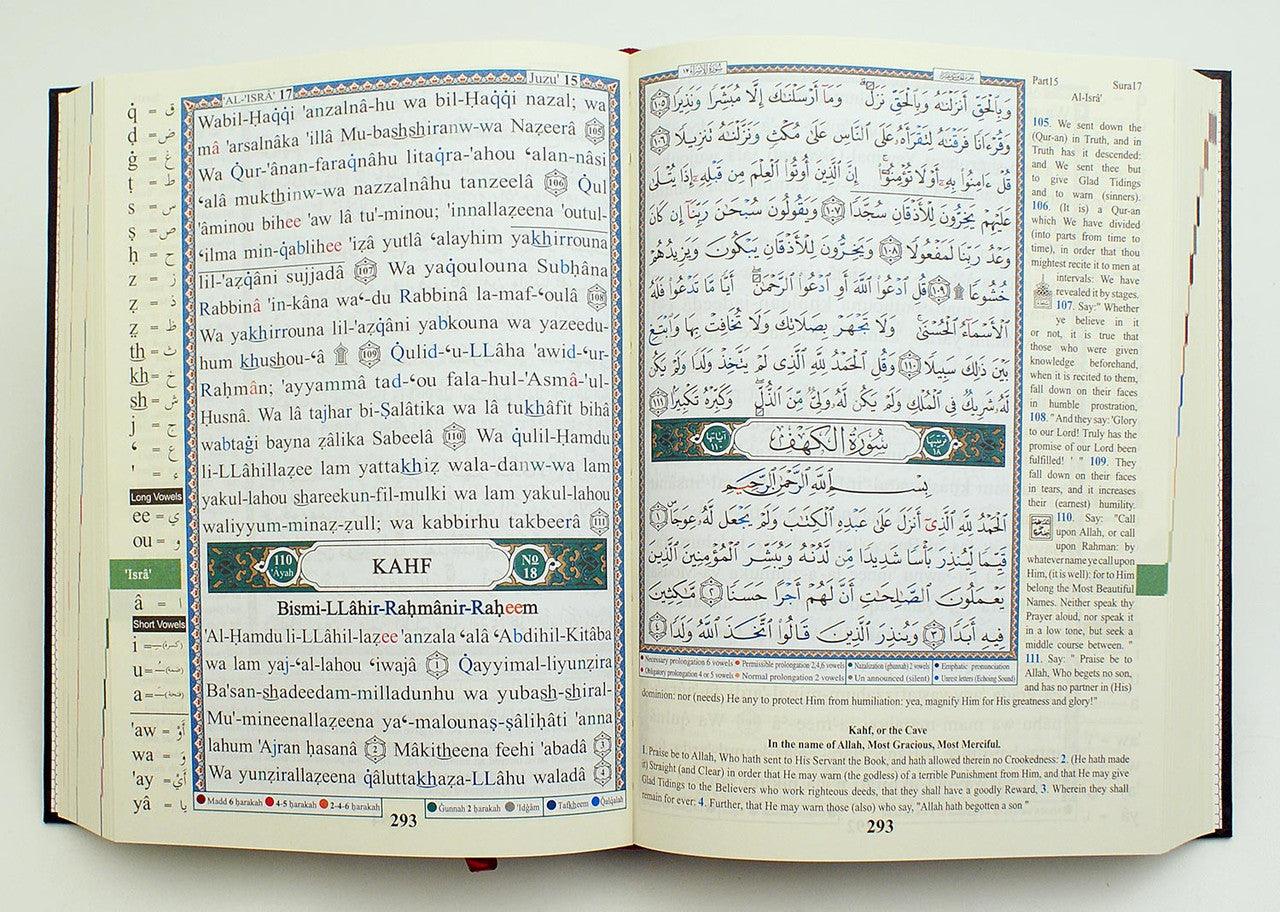 'AL-'ISRÂ' 17
Juzu' 15
Wabil-Ḥaqqi 'anzalnâ-hu wa bil-Ḥaqqi nazal; wa
mâ 'arsalnâka 'illâ Mu-bashshiranw-wa Nazeerâ 105
Wa Qur-'ânan-faraq̇nâhu litaq̇ra-'ahou ‘alan-nâsi
‘alâ mukthinw-wa nazzalnâhu tanzeelâ 106 Q̇ul
'âminou bihee 'aw lâ tu'-minou; 'innallaz̧eena 'outul-
‘ilma min-q̇ablihee 'iz̧â yutlâ ‘alayhim yakhirrouna
lil-'az̧q̇âni sujjadâ 107 Wa yaq̇oulouna Subḥâna
Rabbinâ 'in-kâna wa‘-du Rabbinâ la-maf-‘oulâ 108
Wa yakhirrouna lil-'az̧q̇âni yabkouna wa yazeedu-
hum khushou-‘â ۩ 109 Q̇ulid-‘u-LLâha 'awid-‘ur-
Raḥmân; 'ayyammâ tad-‘ou fala-hul-'Asmâ-'ul-
Ḥusnâ. Wa lâ tajhar bi-Ṣalâtika wa lâ tukhâfit bihâ
wabtaġi bayna z̧âlika Sabeelâ 110 Wa q̇ulil-Ḥamdu
li-LLâhillaz̧ee lam yattakhiz̧ wala-danw-wa lam
yakul-lahou shareekun-fil-mulki wa lam yakul-lahou
waliyyum-minaz̧-z̧ull; wa kabbirhu takbeerâ 111
110 'Âyah KAHF No 18
Bismi-LLâhir-Raḥmânir-Raḥeem
'Al-Ḥamdu li-LLâhil-laz̧ee 'anzala ‘alâ ‘Abdihil-Kitâba
wa lam yaj-‘al-lahou ‘iwajâ 1 Q̇ayyimal-liyunz̧ira
Ba'san-shadeedam-milladunhu wa yubash-shiral-
Mu'-mineenallaz̧eena ya‘-malounaṣ-ṣâliḥâti 'anna
lahum 'Ajran ḥasanâ 2 Mâkitheena feehi 'abadâ 3
Wa yunz̧irallaz̧eena q̇âluttakhaz̧a-LLâhu waladâ 4
Madd 6 ḥarakah 4-5 ḥarakah 2-4-6 ḥarakah Ġunnah 2 ḥarakah 'Idġâm Tafkheem Qalqalah
293
q̇ = ق
ḍ = ض
ġ = غ
ṭ = ط
s = س
ṣ = ص
ḥ = ح
z = ز
z̧ = ذ
ẓ = ظ
th = ث
kh = خ
sh = ش
j = ج
‘ = ع
' = ء
Long Vowels
ee = ي
ou = و
'Isrâ'
â = ا
Short Vowels
i
u
a
'aw = أَوْ
wa = وَ
'ay = أَيْ
yâ = يَا
سُورَةُ الإِسْرَاءِ ١٧
وَبِٱلْحَقِّ أَنزَلْنَٰهُ وَبِٱلْحَقِّ نَزَلَ ۗ وَمَآ أَرْسَلْنَٰكَ إِلَّا مُبَشِّرًا وَنَذِيرًا ١٠٥
وَقُرْءَانًا فَرَقْنَٰهُ لِتَقْرَأَهُۥ عَلَى ٱلنَّاسِ عَلَىٰ مُكْثٍ وَنَزَّلْنَٰهُ تَنزِيلًا ١٠٦
قُلْ ءَامِنُوا۟ بِهِۦٓ أَوْ لَا تُؤْمِنُوٓا۟ ۚ إِنَّ ٱلَّذِينَ أُوتُوا۟ ٱلْعِلْمَ مِن قَبْلِهِۦٓ إِذَا يُتْلَىٰ
عَلَيْهِمْ يَخِرُّونَ لِلْأَذْقَانِ سُجَّدًا ١٠٧ وَيَقُولُونَ سُبْحَٰنَ رَبِّنَآ إِن كَانَ
وَعْدُ رَبِّنَا لَمَفْعُولًا ١٠٨ وَيَخِرُّونَ لِلْأَذْقَانِ يَبْكُونَ وَيَزِيدُهُمْ
خُشُوعًا ۩ ١٠٩ قُلِ ٱدْعُوا۟ ٱللَّهَ أَوِ ٱدْعُوا۟ ٱلرَّحْمَٰنَ ۖ أَيًّا مَّا تَدْعُوا۟ فَلَهُ
ٱلْأَسْمَآءُ ٱلْحُسْنَىٰ ۚ وَلَا تَجْهَرْ بِصَلَاتِكَ وَلَا تُخَافِتْ بِهَا وَٱبْتَغِ
بَيْنَ ذَٰلِكَ سَبِيلًا ١١٠ وَقُلِ ٱلْحَمْدُ لِلَّهِ ٱلَّذِى لَمْ يَتَّخِذْ وَلَدًا وَلَمْ يَكُن
لَّهُۥ شَرِيكٌ فِى ٱلْمُلْكِ وَلَمْ يَكُن لَّهُۥ وَلِىٌّ مِّنَ ٱلذُّلِّ ۖ وَكَبِّرْهُ تَكْبِيرًا ١١١
ترتيبها ١٨ سُورَةُ الكَهْف آياتها ١١٠
بِسْمِ ٱللَّهِ ٱلرَّحْمَٰنِ ٱلرَّحِيمِ
ٱلْحَمْدُ لِلَّهِ ٱلَّذِىٓ أَنزَلَ عَلَىٰ عَبْدِهِ ٱلْكِتَٰبَ وَلَمْ يَجْعَل لَّهُۥ عِوَجَا ١
قَيِّمًا لِّيُنذِرَ بَأْسًا شَدِيدًا مِّن لَّدُنْهُ وَيُبَشِّرَ ٱلْمُؤْمِنِينَ ٱلَّذِينَ
يَعْمَلُونَ ٱلصَّٰلِحَٰتِ أَنَّ لَهُمْ أَجْرًا حَسَنًا ٢ مَّٰكِثِينَ
فِيهِ أَبَدًا ٣ وَيُنذِرَ ٱلَّذِينَ قَالُوا۟ ٱتَّخَذَ ٱللَّهُ وَلَدًا ٤
Necessary prolongation 6 vowels Permissible prolongation 2,4,6 vowels Nazalization (ghunnah) 2 vowels Emphatic pronunciation
Obligatory prolongation 4 or 5 vowels Normal prolongation 2 vowels Un announced (silent) Unrest letters (Echoing Sound)
Part15 Sura17
Al-Isrâ'
105. We sent down the
(Qur-an) in Truth, and in
Truth has it descended:
and We sent thee but
to give Glad Tidings
and to warn (sinners).
106. (It is) a Qur-an
which We have divided
(into parts from time to
time), in order that thou
mightest recite it to men at
intervals: We have
revealed it by stages.
107. Say:" Whether
ye believe in it
or not, it is true that
those who were given
knowledge beforehand,
when it is recited to them,
fall down on their faces
in humble prostration,
108. " And they say: 'Glory
to our Lord! Truly has the
promise of our Lord been
fulfilled! ' " 109. They
fall down on their faces
in tears, and it increases
their (earnest) humility.
110. Say: "Call
upon Allah, or call
upon Rahman: by
whatever name ye call upon
Him, (it is well): for to Him
belong the Most Beautiful
Names. Neither speak thy
Prayer aloud, nor speak it
in a low tone, but seek a
middle course between. "
111. Say: " Praise be to
Allah, Who begets no son,
and has no partner in (His)
dominion: nor (needs) He any to protect Him from humiliation: yea, magnify Him for His greatness and glory!"
Kahf, or the Cave
In the name of Allah, Most Gracious, Most Merciful.
1. Praise be to Allah, Who hath sent to His Servant the Book, and hath allowed therein no Crookedness: 2. (He hath made
it) Straight (and Clear) in order that He may warn (the godless) of a terrible Punishment from Him, and that He may give
Glad Tidings to the Believers who work righteous deeds, that they shall have a goodly Reward, 3. Wherein they shall
remain for ever: 4. Further, that He may warn those (also) who say, "Allah hath begotten a son "
293